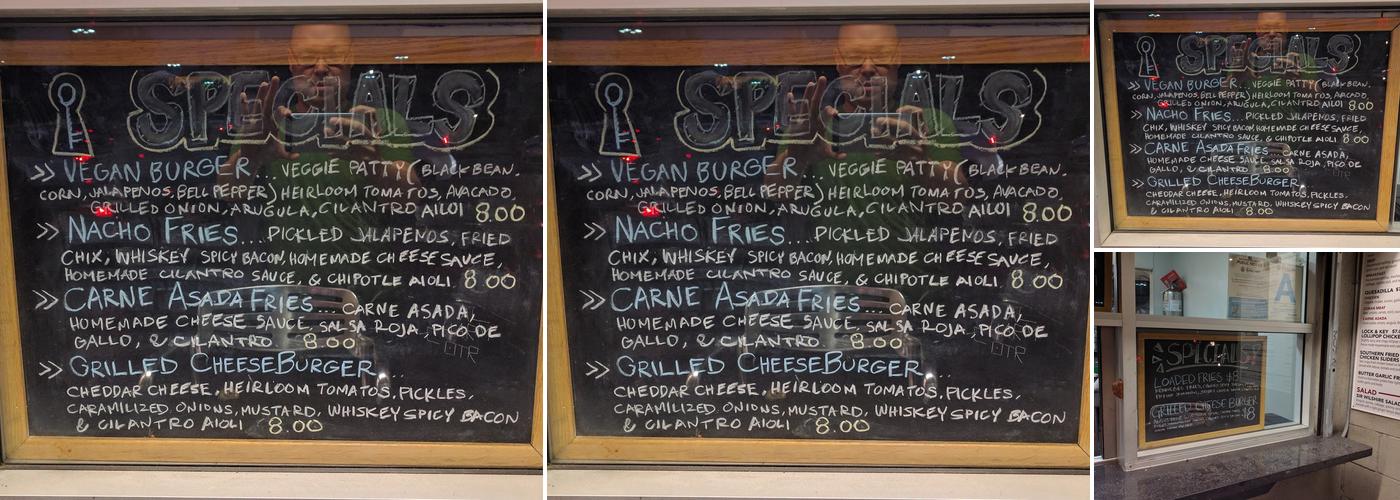 SPECIALS
>> VEGAN BURGER... VEGGIE PATTY (BLACK BEAN,
CORN, JALAPENOS, BELL PEPPER) HEIRLOOM TOMATOS, AVACADO,
GRILLED ONION, ARUGULA, CILANTRO AILOI 8.00
>> NACHO FRIES... PICKLED JALAPENOS, FRIED
CHIX, WHISKEY SPICY BACON, HOMEMADE CHEESE SAUCE,
HOMEMADE CILANTRO SAUCE, & CHIPOTLE AIOLI 8.00
>> CARNE ASADA FRIES... CARNE ASADA,
HOMEMADE CHEESE SAUCE, SALSA ROJA, PICO DE
GALLO, & CILANTRO 8.00
>> GRILLED CHEESEBURGER...
CHEDDAR CHEESE, HEIRLOOM TOMATOS, PICKLES,
CARAMILIZED ONIONS, MUSTARD, WHISKEY SPICY BACON
& CILANTRO AIOLI 8.00
SPECIALS
>> VEGAN BURGER... VEGGIE PATTY (BLACK BEAN,
CORN, JALAPENOS, BELL PEPPER) HEIRLOOM TOMATOS, AVACADO,
GRILLED ONION, ARUGULA, CILANTRO AILOI 8.00
>> NACHO FRIES... PICKLED JALAPENOS, FRIED
CHIX, WHISKEY SPICY BACON, HOMEMADE CHEESE SAUCE,
HOMEMADE CILANTRO SAUCE, & CHIPOTLE AIOLI 8.00
>> CARNE ASADA FRIES... CARNE ASADA,
HOMEMADE CHEESE SAUCE, SALSA ROJA, PICO DE
GALLO, & CILANTRO 8.00
>> GRILLED CHEESEBURGER...
CHEDDAR CHEESE, HEIRLOOM TOMATOS, PICKLES,
CARAMILIZED ONIONS, MUSTARD, WHISKEY SPICY BACON
& CILANTRO AIOLI 8.00
SPECIALS
>> VEGAN BURGER... VEGGIE PATTY (BLACK BEAN,
CORN, JALAPENOS, BELL PEPPER) HEIRLOOM TOMATOS, AVACADO,
GRILLED ONION, ARUGULA, CILANTRO AILOI 8.00
>> NACHO FRIES... PICKLED JALAPENOS, FRIED
CHIX, WHISKEY SPICY BACON, HOMEMADE CHEESE SAUCE,
HOMEMADE CILANTRO SAUCE, & CHIPOTLE AIOLI 8.00
>> CARNE ASADA FRIES... CARNE ASADA,
HOMEMADE CHEESE SAUCE, SALSA ROJA, PICO DE
GALLO, & CILANTRO 8.00
>> GRILLED CHEESEBURGER...
CHEDDAR CHEESE, HEIRLOOM TOMATOS, PICKLES,
CARAMILIZED ONIONS, MUSTARD, WHISKEY SPICY BACON
& CILANTRO AIOLI 8.00
A
SPECIALS
LOADED FRIES $8
GRILLED CHEESE BURGER
$8
QUESADILLA
LOCK & KEY
LOLLIPOP CHICKEN
SOUTHERN FRIED
CHICKEN SLIDERS
BUTTER GARLIC FR
SALAD
SIR WILSHIRE SALAD